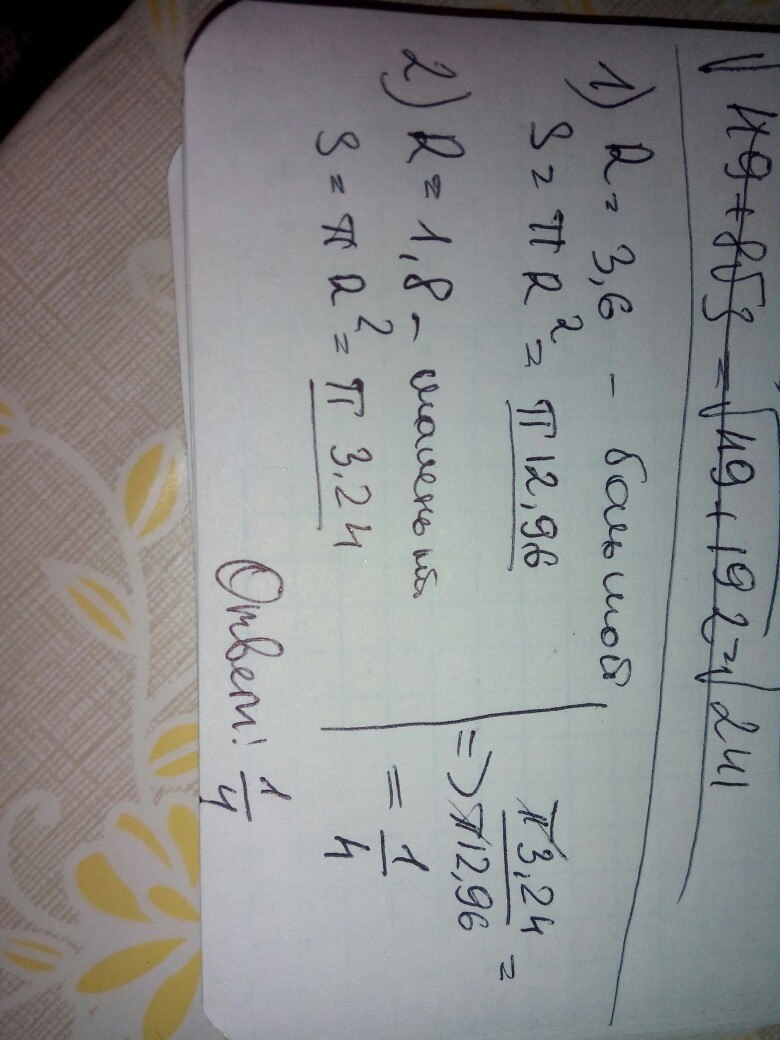 √49+8√3 = √49+192 = √241
1) R = 3,6 - большой
S = πR² = π12,96
2) R = 1,8 - маленький
S = πR² = π3,24
=> π3,24/π12,96 =
= 1/4
Ответ: 1/4